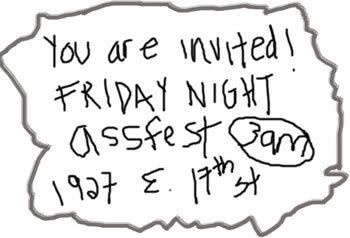 You are invited!
FRIDAY NIGHT
assfest 3am
1927 E. 17th st